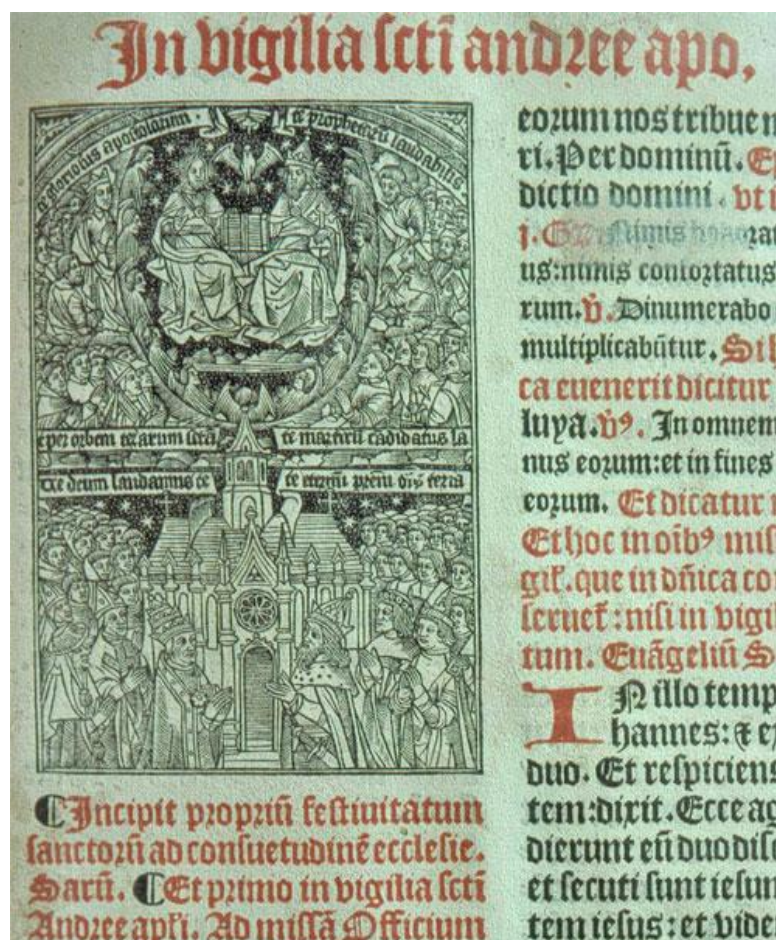 In vigilia scti andree apo.
te gloriosus apostolorum. te prophetarū laudabilis
te per orbem terrarum scta te martirū cādidatus la
te deum laudamus te te eternū prem oīs terra
¶Incipit propriū festiuitatum
sanctorū ad consuetudinē ecclesie.
Sarū. ¶Et primo in vigilia scti
Andree apłi. Ad missā Officium
eorum nos tribue
ri. Per dominū.
dictio domini. vt
j. Nimis
us: nimis confortatus
rum. v̄. Dinumerabo
multiplicabūtur.
ca euenerit dicitur
luya. v̄ꝰ. In omnem
nus eorum: et in fines
eorum. Et dicatur
Et hoc in oībꝰ mis
git. que in dn̄ica co
seruet: nisi in vigi
tum. Euāgeliū S
IN illo temp
hannes: ⁊ ex
duo. Et respiciens
tem: dixit. Ecce ag
dierunt eū duo disc
et secuti sunt iesum
tem iesus: et vide